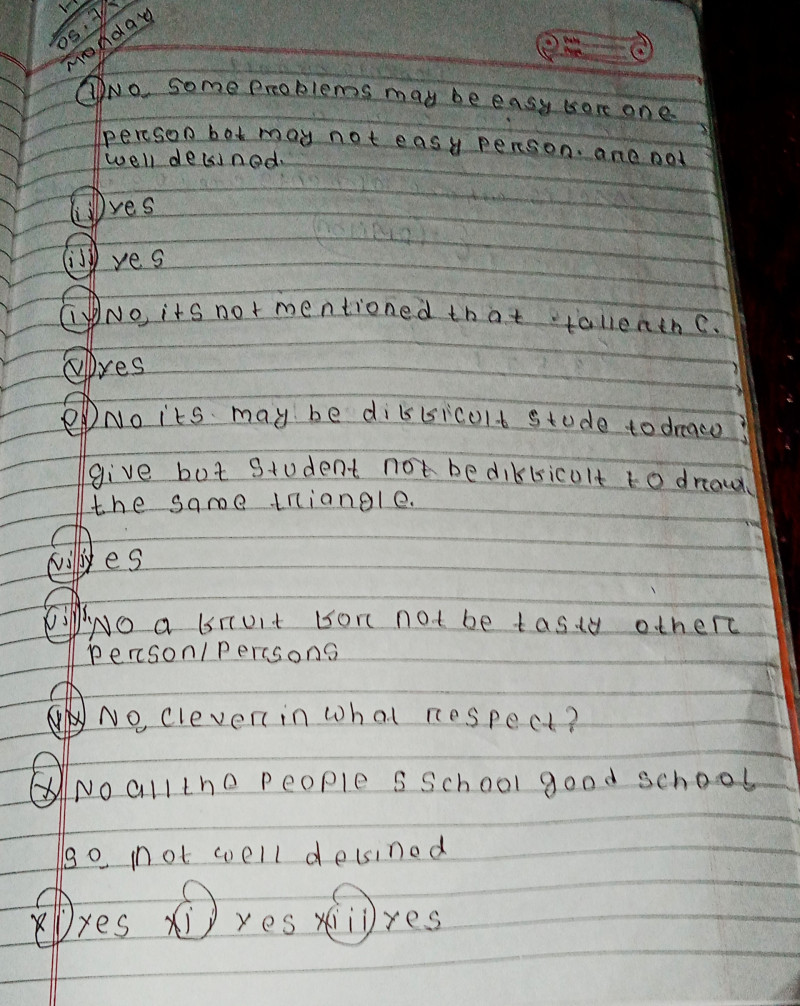 05.
Monday
i) No, some problems may be easy for one
person bot may not easy person. are not
well defined.
ii) yes
iii) yes
iv) No, its not mentioned that taller then C.
v) yes
No its may be difficult stude to draw
give bot student not be difficult to draw
the same triangle.
vii) yes
viii) No a fruit for not be tasty other
person/persons
No, clever in what respect?
x) No all the people s school good school
so, not well defined
xi) yes xi) yes xiii) yes